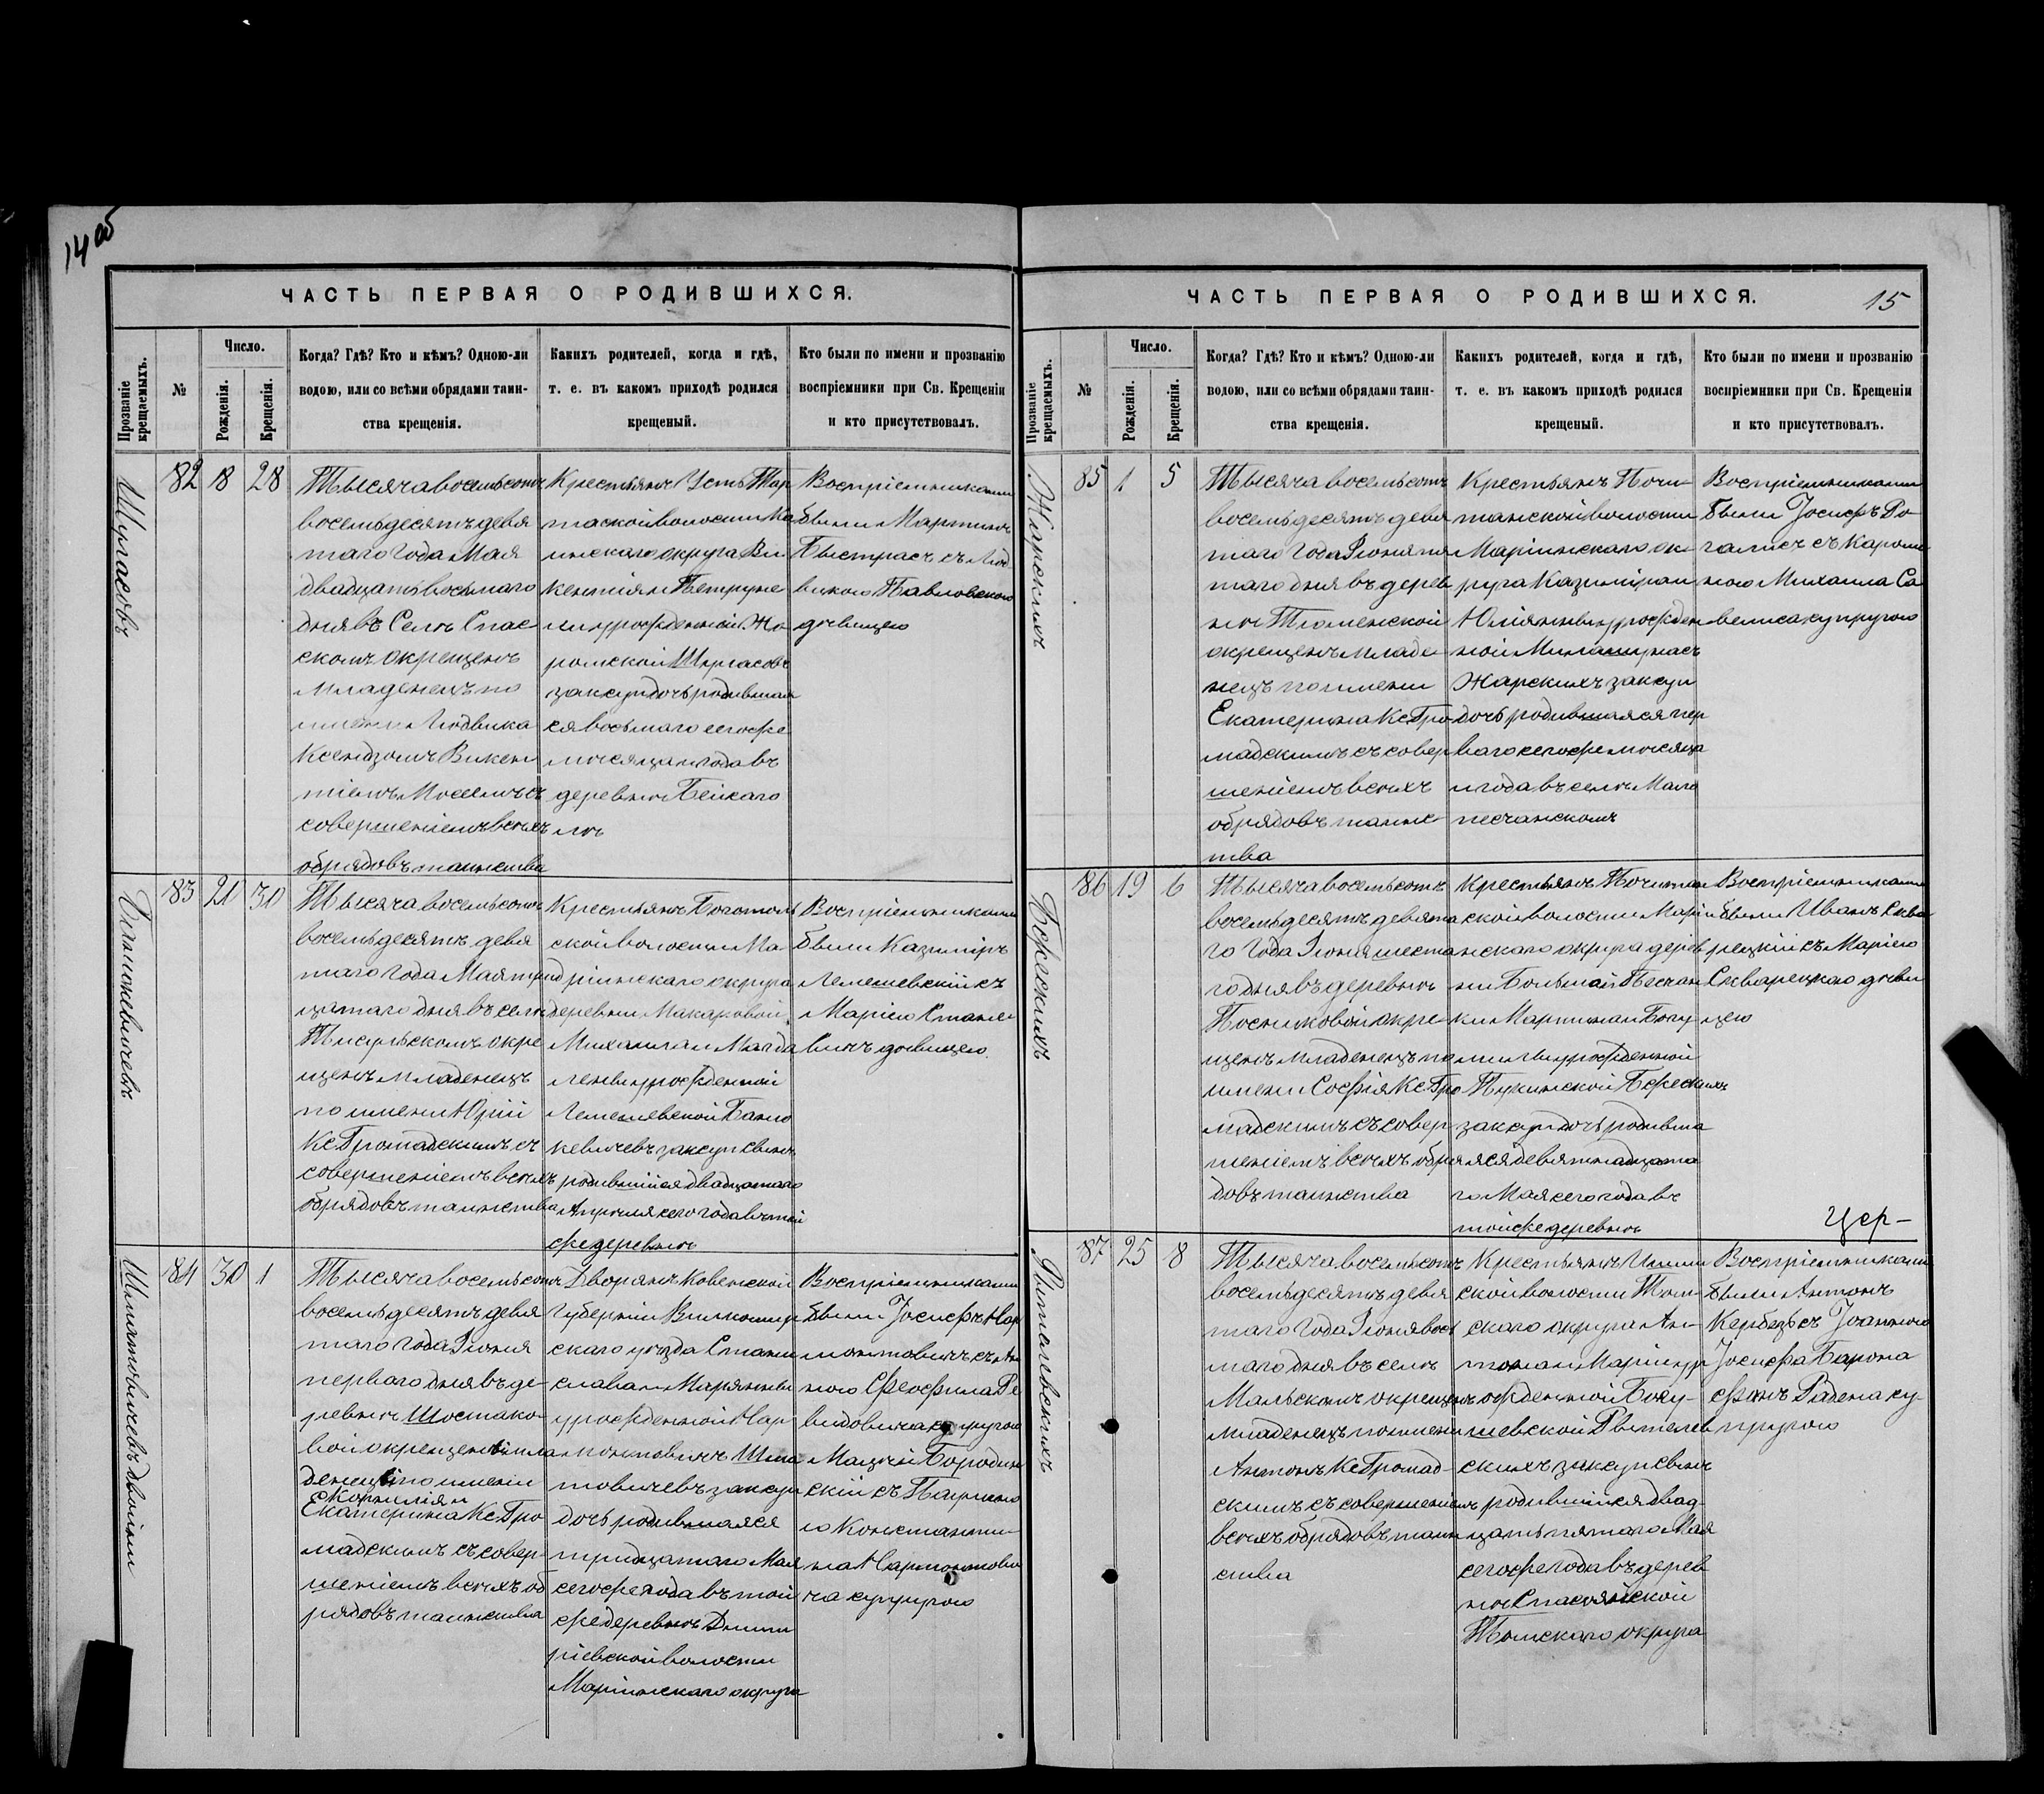 14об
ЧАСТЬ ПЕРВАЯ О РОДИВШИХСЯ.
Прозваніе крещаемыхъ.
№
Число.
Рожденія.
Крещенія.
Когда? Гдѣ? Кто и кѣмъ? Одною-ли
водою, или со всѣми обрядами таин-
ства крещенія.
Какихъ родителей, когда и гдѣ,
т. е. въ какомъ приходѣ родился
крещеный.
Кто были по имени и прозванію
воспріемники при Св. Крещеніи
и кто присутствовалъ.
82 18 28
Тысяча восемьсотъ
восемьдесятъ девя
таго года Мая
двадцать восьмаго
дня въ Селѣ Спас
скомъ окрещенъ
младенецъ по
имени Людвика
Ксендзомъ Викен
тіемъ
совершеніемъ всѣхъ
обрядовъ таинства
Крестьянъ Усть Тар
таской волости
инскаго округа Ви
кентія и Петруне
ли урожденной
заксуп дочь родившая
ся восьмаго сегоже
мѣсяца и года въ
деревнѣ
Воспріемниками
были Мартинъ
Быстрасъ съ Люд
викою Павловскою
дѣвицею
83 20 30
Тысяча восемьсотъ
восемьдесятъ девя
таго года Мая трид
цатаго дня въ селѣ
Тисульскомъ окре
щенъ младенецъ
по имени Юрій
Кс Громадскимъ съ
совершеніемъ всѣхъ
обрядовъ таинства
Крестьянъ Боготоль
ской волости Ма
ріинскаго округа
деревни Макаровой
Михаила и Магда
лены урожденной
Лемешевской
заксуп сынъ
родившійся двадцатаго
Апрѣля сего года въ той
же деревнѣ
Воспріемниками
были Казиміръ
Лемешевскій съ
Маріею Стане
вичъ дѣвицею
Шиматовичевъ двойни
84 30 1
Тысяча восемьсотъ
восемьдесятъ девя
таго года Іюня
перваго дня въ де-
ревнѣ Шостако-
вой окрещены мла
денцы по имени
Корнилія и
Екатерина Кс Гро
мадскимъ съ совер-
шеніемъ всѣхъ об
рядовъ таинства
Дворянъ Ковенской
Губерніи Вилкомир
скаго уѣзда Стани
слава и Марянны
урожденной Нар
монтовичъ Шима
товичевъ заксуп
дочь родившаяся
тридцатаго Мая
сегоже года въ той
же деревнѣ Дмит
ріевской волости
Маріинскаго округа
Воспріемниками
были Іосифъ Нар
монтовичъ съ Ан
ною Феофила Ре
видовича супругою
Мацѣй Бородин
скій съ Паулино
ю Константи
на Нармонтови
ча супругою
ЧАСТЬ ПЕРВАЯ О РОДИВШИХСЯ.
15
Прозваніе крещаемыхъ.
№
Число.
Рожденія.
Крещенія.
Когда? Гдѣ? Кто и кѣмъ? Одною-ли
водою, или со всѣми обрядами таин-
ства крещенія.
Какихъ родителей, когда и гдѣ,
т. е. въ какомъ приходѣ родился
крещеный.
Кто были по имени и прозванію
воспріемники при Св. Крещеніи
и кто присутствовалъ.
85 1 5
Тысяча восемьсотъ
восемьдесятъ девя
таго года Іюня пя
таго дня въ дерев
нѣ Тюменской
окрещенъ младе
нецъ по имени
Екатерина Кс Гро
мадскимъ съ совер
шеніемъ всѣхъ
обрядовъ таинс
тва
Крестьянъ Почи-
танской волости
Маріинскаго ок-
руга Казиміра и
Юліянны урожден
ной
Жарскихъ заксуп
дочь родившаяся пер
ваго сегоже мѣсяца
и года въ селѣ Мало
песчанскомъ
Воспріемниками
были Іосифъ Ро
галисъ съ Кароли
ною Михаила Са
велиса супругою
Бержескихъ
86 19 6
Тысяча восемьсотъ
восемьдесятъ девята
го года Іюня шеста
го дня въ деревнѣ
Постниковой окре-
щенъ младенецъ по
имени Софія Кс Гро
мадскимъ съ совер
шеніемъ всѣхъ обря
довъ таинства
Крестьянъ Почитан
ской волости Марі
инскаго округа дерев
ни Большой Песчан
ки Мартина и Богу
милы урожденной
заксуп дочь родивша
яся девятнадцата
го Мая сего года въ
той же деревнѣ
Воспріемниками
были Иванъ Сква
рецкій съ Маріею
Скварецкою дѣви
цею
Цер-
87 25 8
Тысяча восемьсотъ
восемьдесятъ девя
таго года Іюня вось
маго дня въ селѣ
Мальскомъ окрещенъ
младенецъ по имени
Антонъ Кс Громад-
скимъ съ совершеніемъ
всѣхъ обрядовъ таин
ства
Крестьянъ Ишим
ской волости Том-
скаго округа Ан-
тона и Маріи ур
ожденной Богу-
шевской
скихъ заксуп сынъ
родившійся двад-
цать пятаго Мая
сегоже года въ дерев
нѣ Спасояйской
Томскаго округа
Воспріемниками
были Антонъ
Кербедь съ Іоанною
Іосифа Барона
фонъ Радена су-
пругою